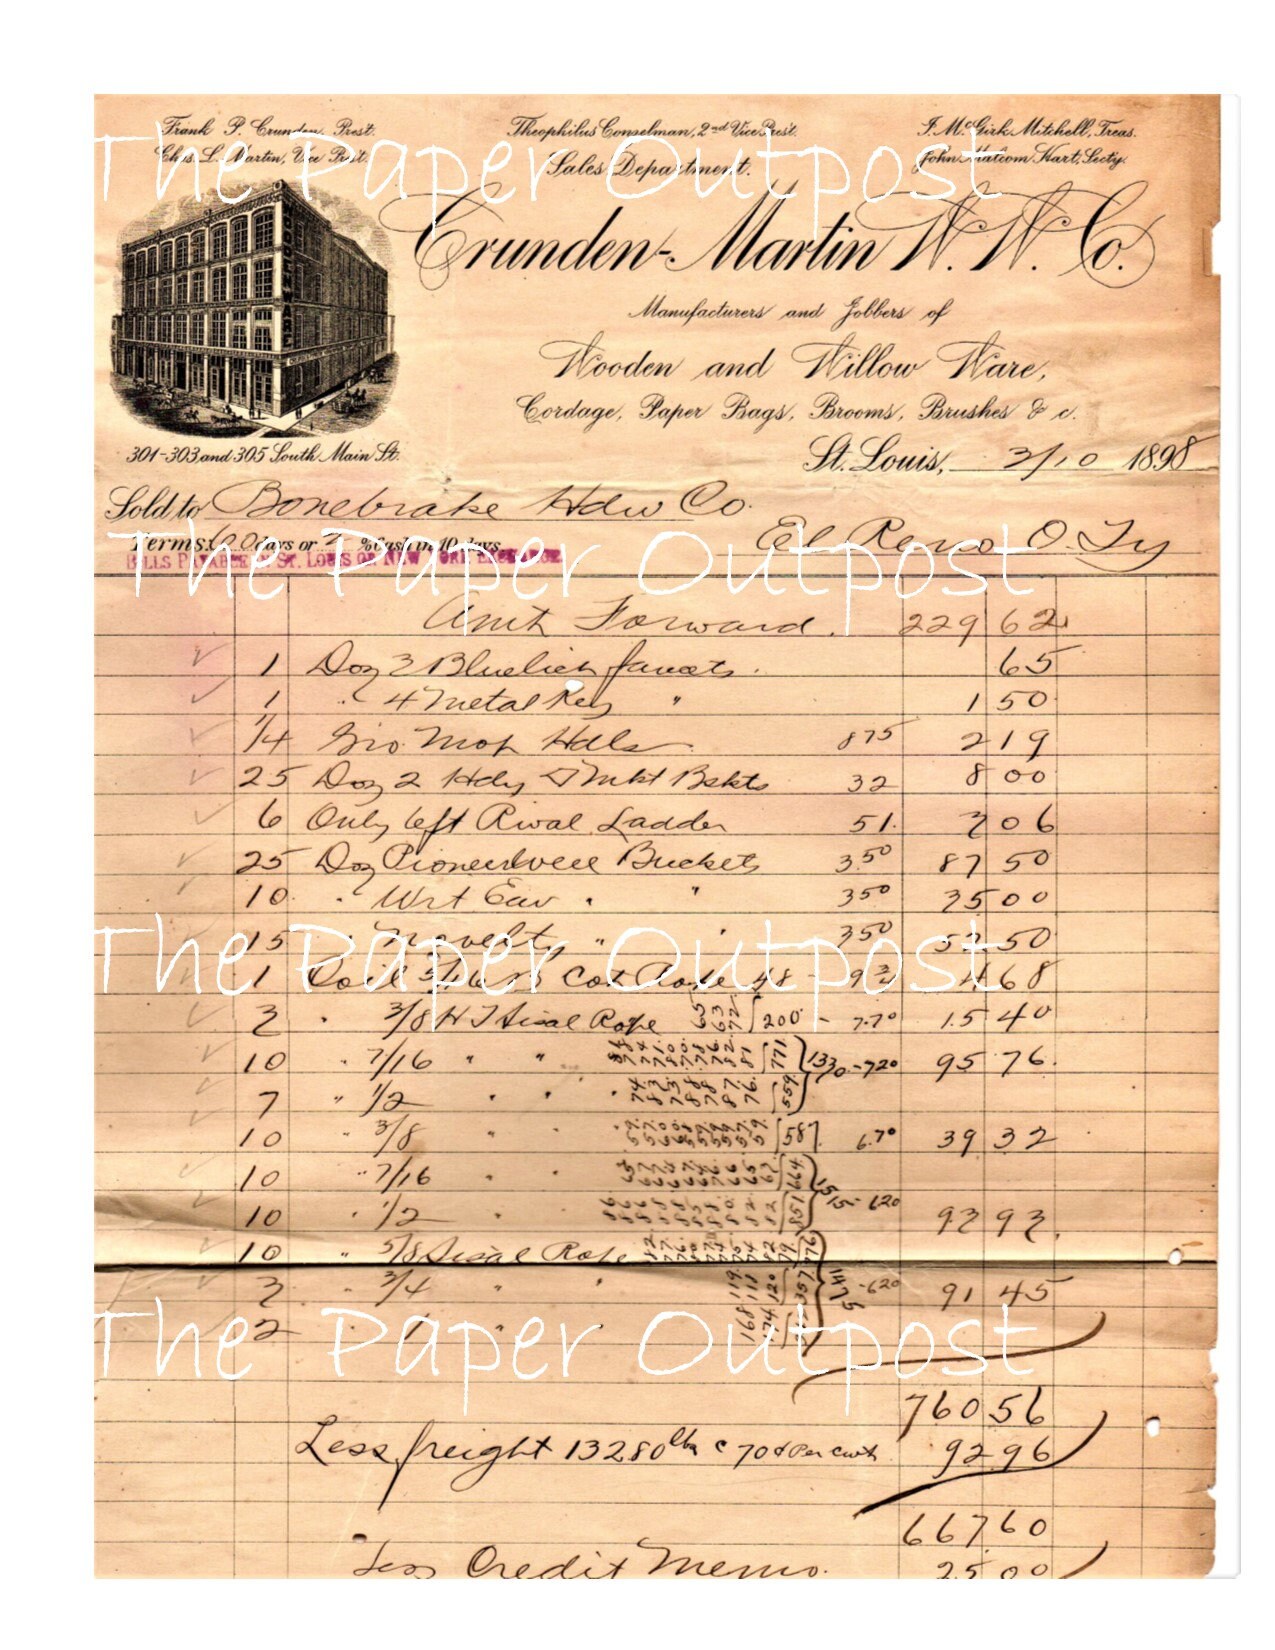 Frank P. Crunden, Prest. Theophilus Conselman, 2nd Vice Prest. J. McGirk Mitchell, Treas.
Chas. L. Martin, Vice Prest. Sales Department. John Matcom Hart, Secty.
The Paper Outpost
Crunden-Martin W. W. Co.
WOODENWARE
Manufacturers and Jobbers of
Wooden and Willow Ware,
Cordage, Paper Bags, Brooms, Brushes & c.
301-303 and 305 South Main St.
St. Louis, 3/10 1898
Sold to Bonebrake Hdw Co.
Terms: 60 days or 2 % Cash in 10 days El Reno O. Ty
BILLS PAYABLE IN ST. LOUIS OR NEW YORK EXCHANGE
The Paper Outpost
Amt Forward. 229 62
1 Doz 3 faucets. 65
1 " 4 Metal Key " 1 50
1/4 Gro. Mop Hdls. 875 2 19
25 Doz 2 Hdy Mkt Bskts 32 8 00
6 Only 6ft Rival Ladder 51. 3 06
25 Doz Buckets 3.50 87 50
10 " " " 350 35 00
The Paper Outpost
15 " Novelty " " 350 52 50
1 Coil 5/16 Cot Rope 48 - 9 3/4 4 68
3 " 3/8 H T Sisal Rope 65 63 72 200 - 7.70 15 40
10 " 7/16 " " 771 1330 - 720 95 76.
7 " 1/2 " " 559
10 " 3/8 " " 587 6.70 39 32
10 " 7/16 " 664
10 " 1/2 " 851 1515 - 620 93 93.
10 " 5/8 Sisal Rope 776
3 " 3/4 " " 119 118 120 357 1475 - 620 91 45
The Paper Outpost
2 " 1 " 168 174
760 56
Less freight 13280 lbs c 70¢ Per cwt 92 96
667 60
Less Credit Memo. 25 00